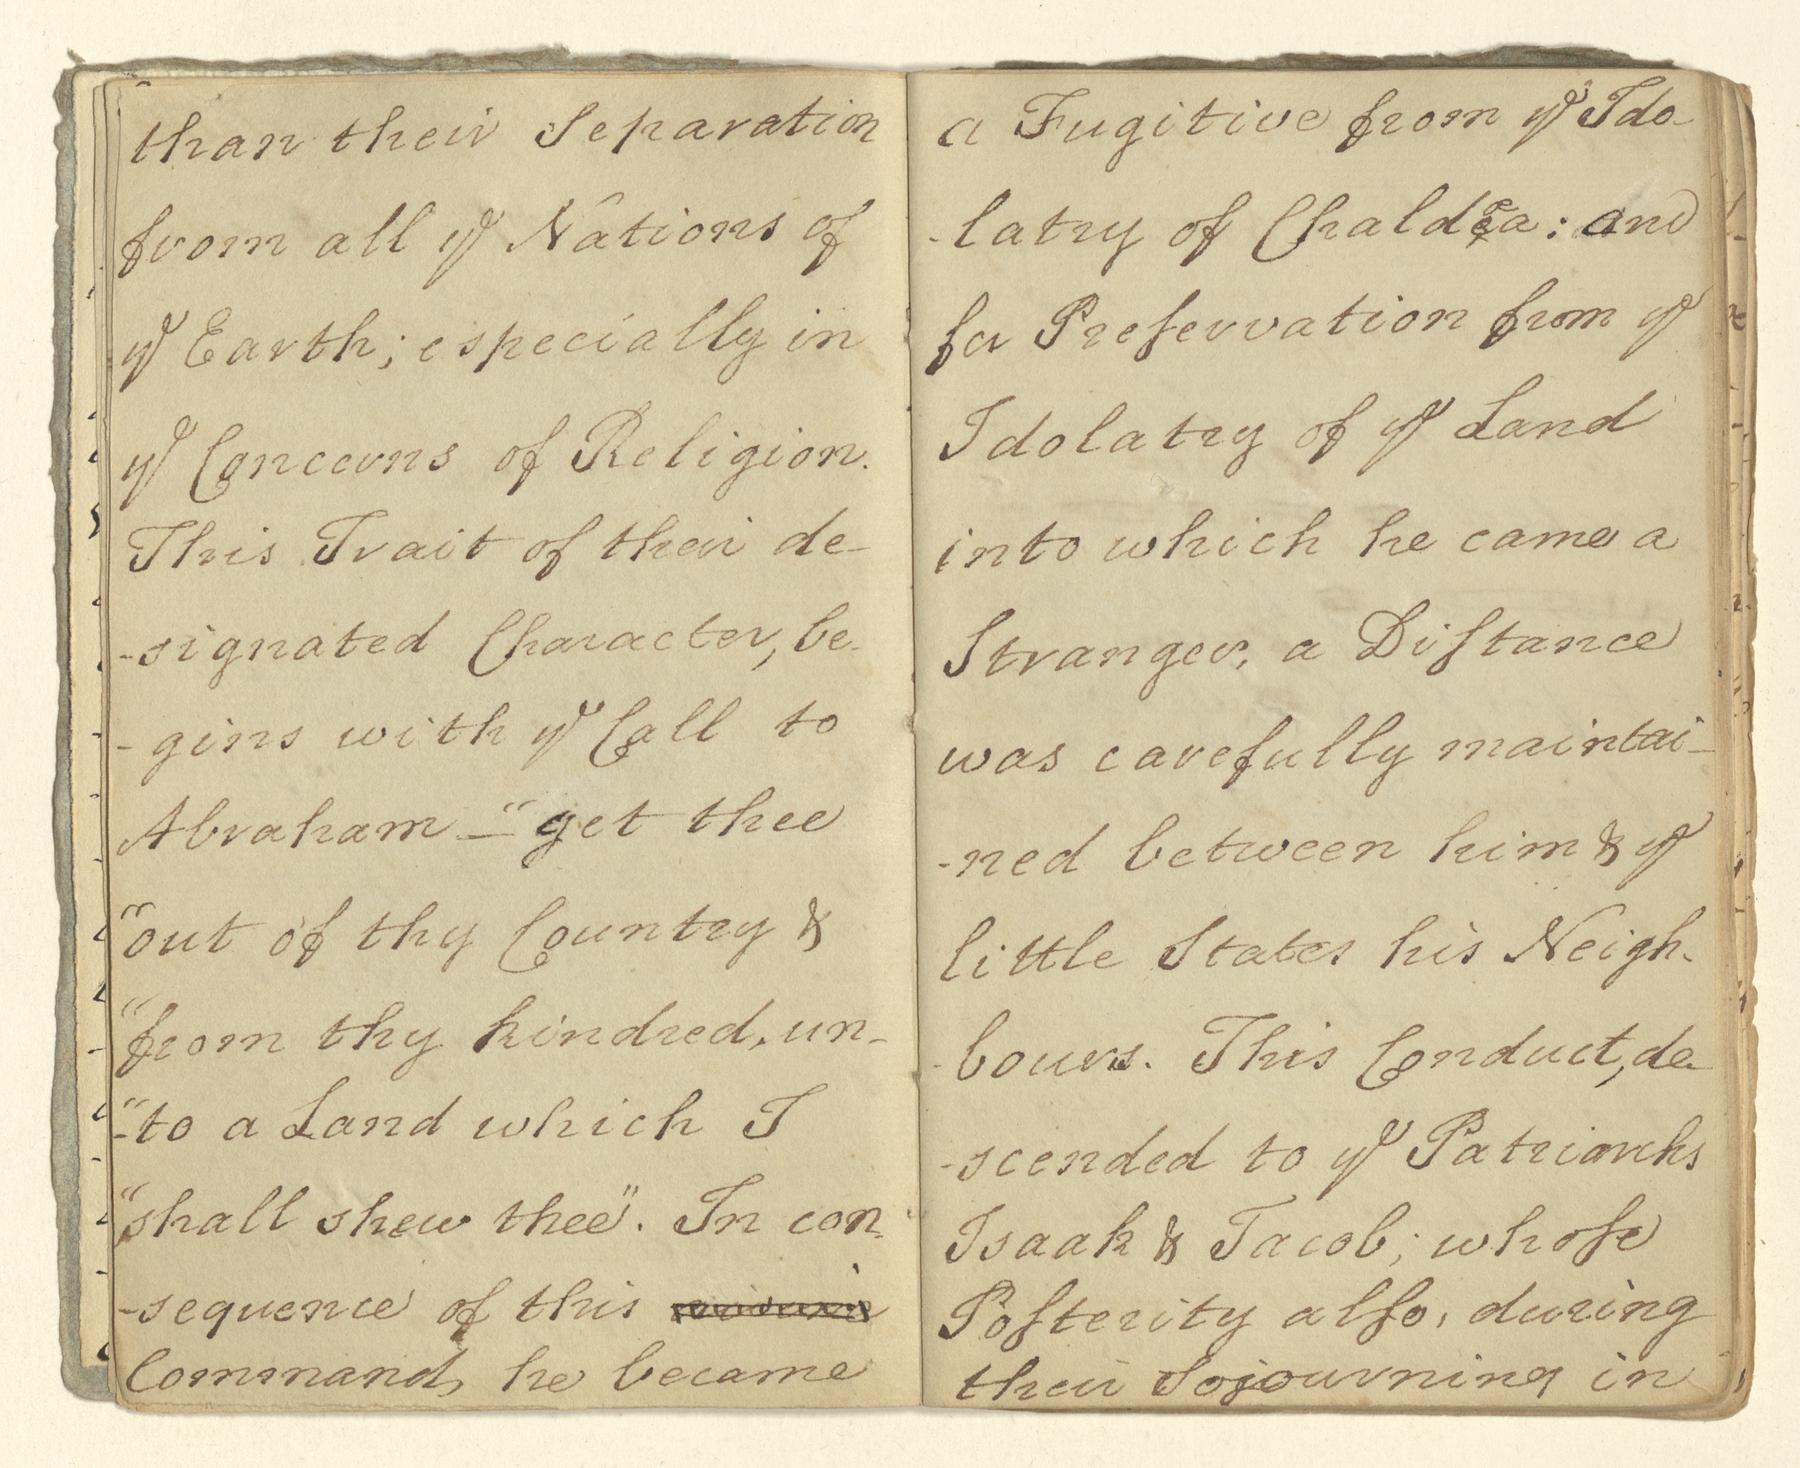 than their Separation
from all yᵉ Nations of
yᵉ Earth; especially in
yᵉ Concerns of Religion.
This Trait of their de-
-signated Character, be-
-gins with yᵉ Call to
Abraham — "get thee
"out of thy Country &
"from thy kindred, un-
"-to a Land which I
"shall shew thee". In con-
-sequence of this
Command, he became
a Fugitive from yᵉ Ido-
-latry of Chaldea: and
for Preſervation from yᵉ
Idolatry of yᵉ Land
into which he came a
Stranger, a Diſtance
was carefully maintai-
-ned between him & yᵉ
little States his Neigh-
-bours. This Conduct, de-
-scended to yᵉ Patriarchs
Isaak & Jacob; whoſe
Poſterity alſo, during
their Sojourning in